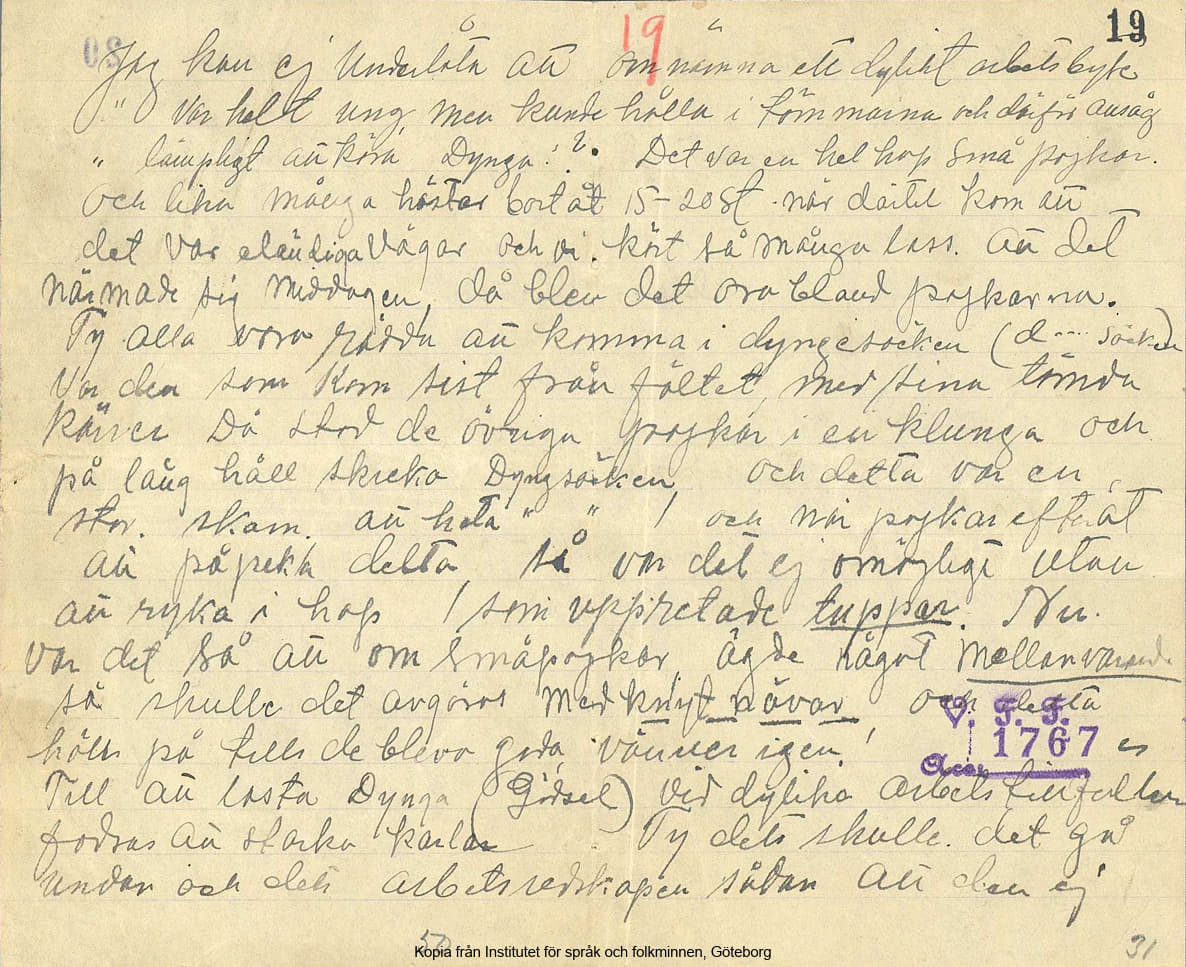 19 19
Jag kan ej Underlåta att omnämna ett dylikt arbetsbyte
" var helt ung, men kunde hålla i tömmarna och därför ansåg
" lämpligt att köra, Dynga!?. Det var en hel hop små pojkar.
och lika många hästar bortåt 15-20 St när därtil kom att
det var eländiga vägar och vi kört så många lass. att det
närmade sig middagen, då blev det oro bland pojkarna.
Ty alla voro rädda att komma i dyngesäcken (d---- säcken)
Var den som kom sist från fältet, med sina tömda
kärrer Då stod de övriga pojkar i en klunga och
på lång håll skreko Dyngsäcken, och detta var en
stor. skam. att heta " " ! och när pojkar efteråt
att påpeka detta, så var det ej omöjligt utan
att ryka i hop ! som uppretade tuppar. Nu.
var det så att om småpojkar ägde något Mellanvarande
så skulle det avgöras med knyt nävar, och detta
hölls på tills de blevo goda vänner igen!
V. F. F.
1767
Acc.
Till att lasta Dynga (Gödsel) vid dylika arbets tillfällen
fodras att starka karlar Ty dels skulle. det gå
undan och dels arbetsredskapen sådan att den ej
31
Kopia från Institutet för språk och folkminnen, Göteborg